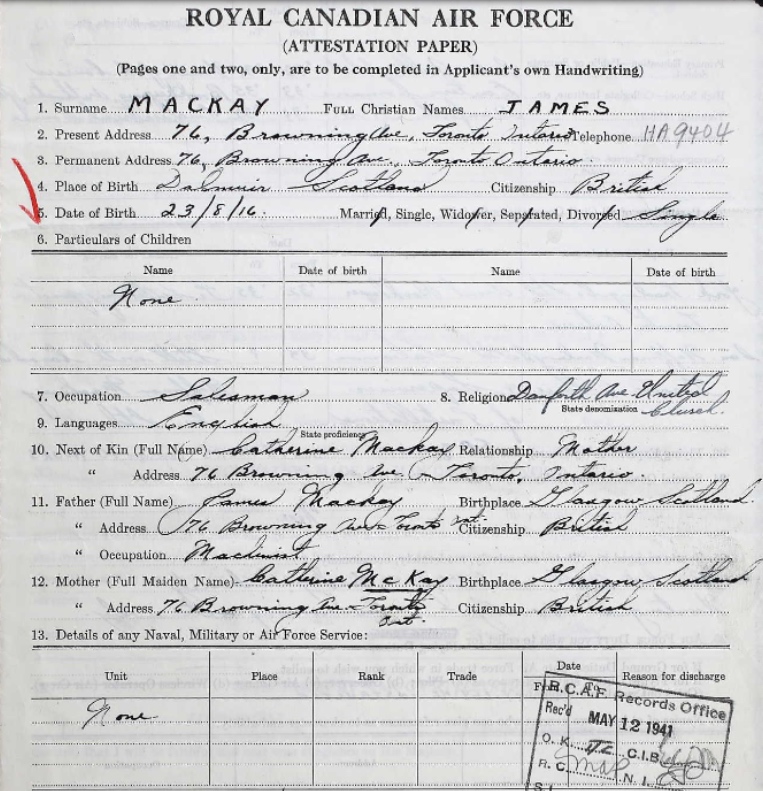 ROYAL CANADIAN AIR FORCE
(ATTESTATION PAPER)
(Pages one and two, only, are to be completed in Applicant's own Handwriting)
1. Surname MACKAY FULL Christian Names JAMES
2. Present Address 76, Browning Ave, Toronto Ontario Telephone HA9404
3. Permanent Address 76, Browning Ave., Toronto Ontario.
4. Place of Birth Dalmuir Scotland Citizenship British
5. Date of Birth 23/8/16. Married, Single, Widower, Separated, Divorced Single
6. Particulars of Children
Name Date of birth Name Date of birth
None
7. Occupation Salesman 8. Religion Danforth Ave United Church.
State denomination
9. Languages English
State proficiency
10. Next of Kin (Full Name) Catherine Mackay Relationship Mother
" Address 76 Browning Ave Toronto, Ontario
11. Father (Full Name) James Mackay Birthplace Glasgow Scotland.
" Address 76 Browning Ave Toronto Ont. Citizenship British
" Occupation Machinist
12. Mother (Full Maiden Name) Catherine McKay Birthplace Glasgow Scotland
" Address 76 Browning Ave. Toronto Ont. Citizenship British
13. Details of any Naval, Military or Air Force Service:
Unit Place Rank Trade Date Reason for discharge
From To
None
R.C.A.F. Records Office
Rec'd MAY 12 1941
O.K. C.I.B.
R.C. N.I.
S.I.